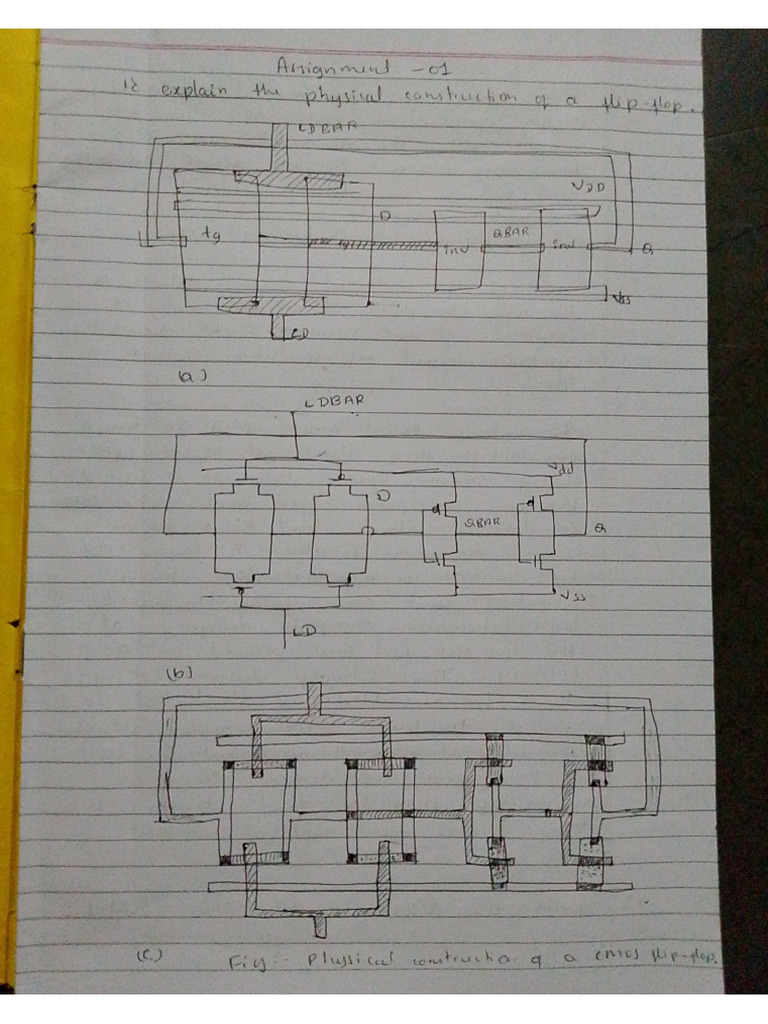 Assignment -01
1) explain the physical construction of a flip-flop.
LDBAR
VDD
D
tg
inv
QBAR
inv
Q
VSS
LD
(a)
LDBAR
Vdd
D
QBAR
Q
VSS
LD
(b)
(c) Fig :- Physical construction of a cmos flip-flop.